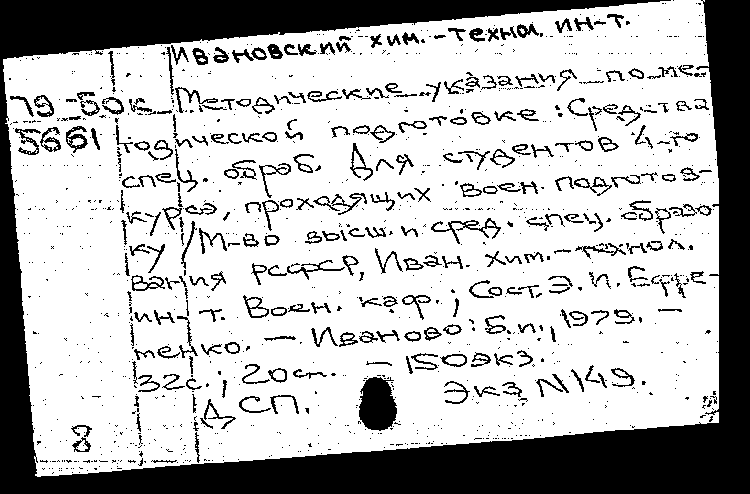 Ивановский хим.-технол. ин-т.
79-50к Методические указания по ме-
5661 тодической подготовке : Средства
спец. обраб. Для студентов 4-го
курса, проходящих воен. подготов-
ку / М-во высш. и сред. спец. образо-
вания РСФСР, Иван. хим.-технол.
ин-т. Воен. каф. ; Сост. Э. И. Ефре-
менко. — Иваново : Б.и., 1979. —
32с. ; 20см. — 150экз.
ДСП. Экз N149.
8